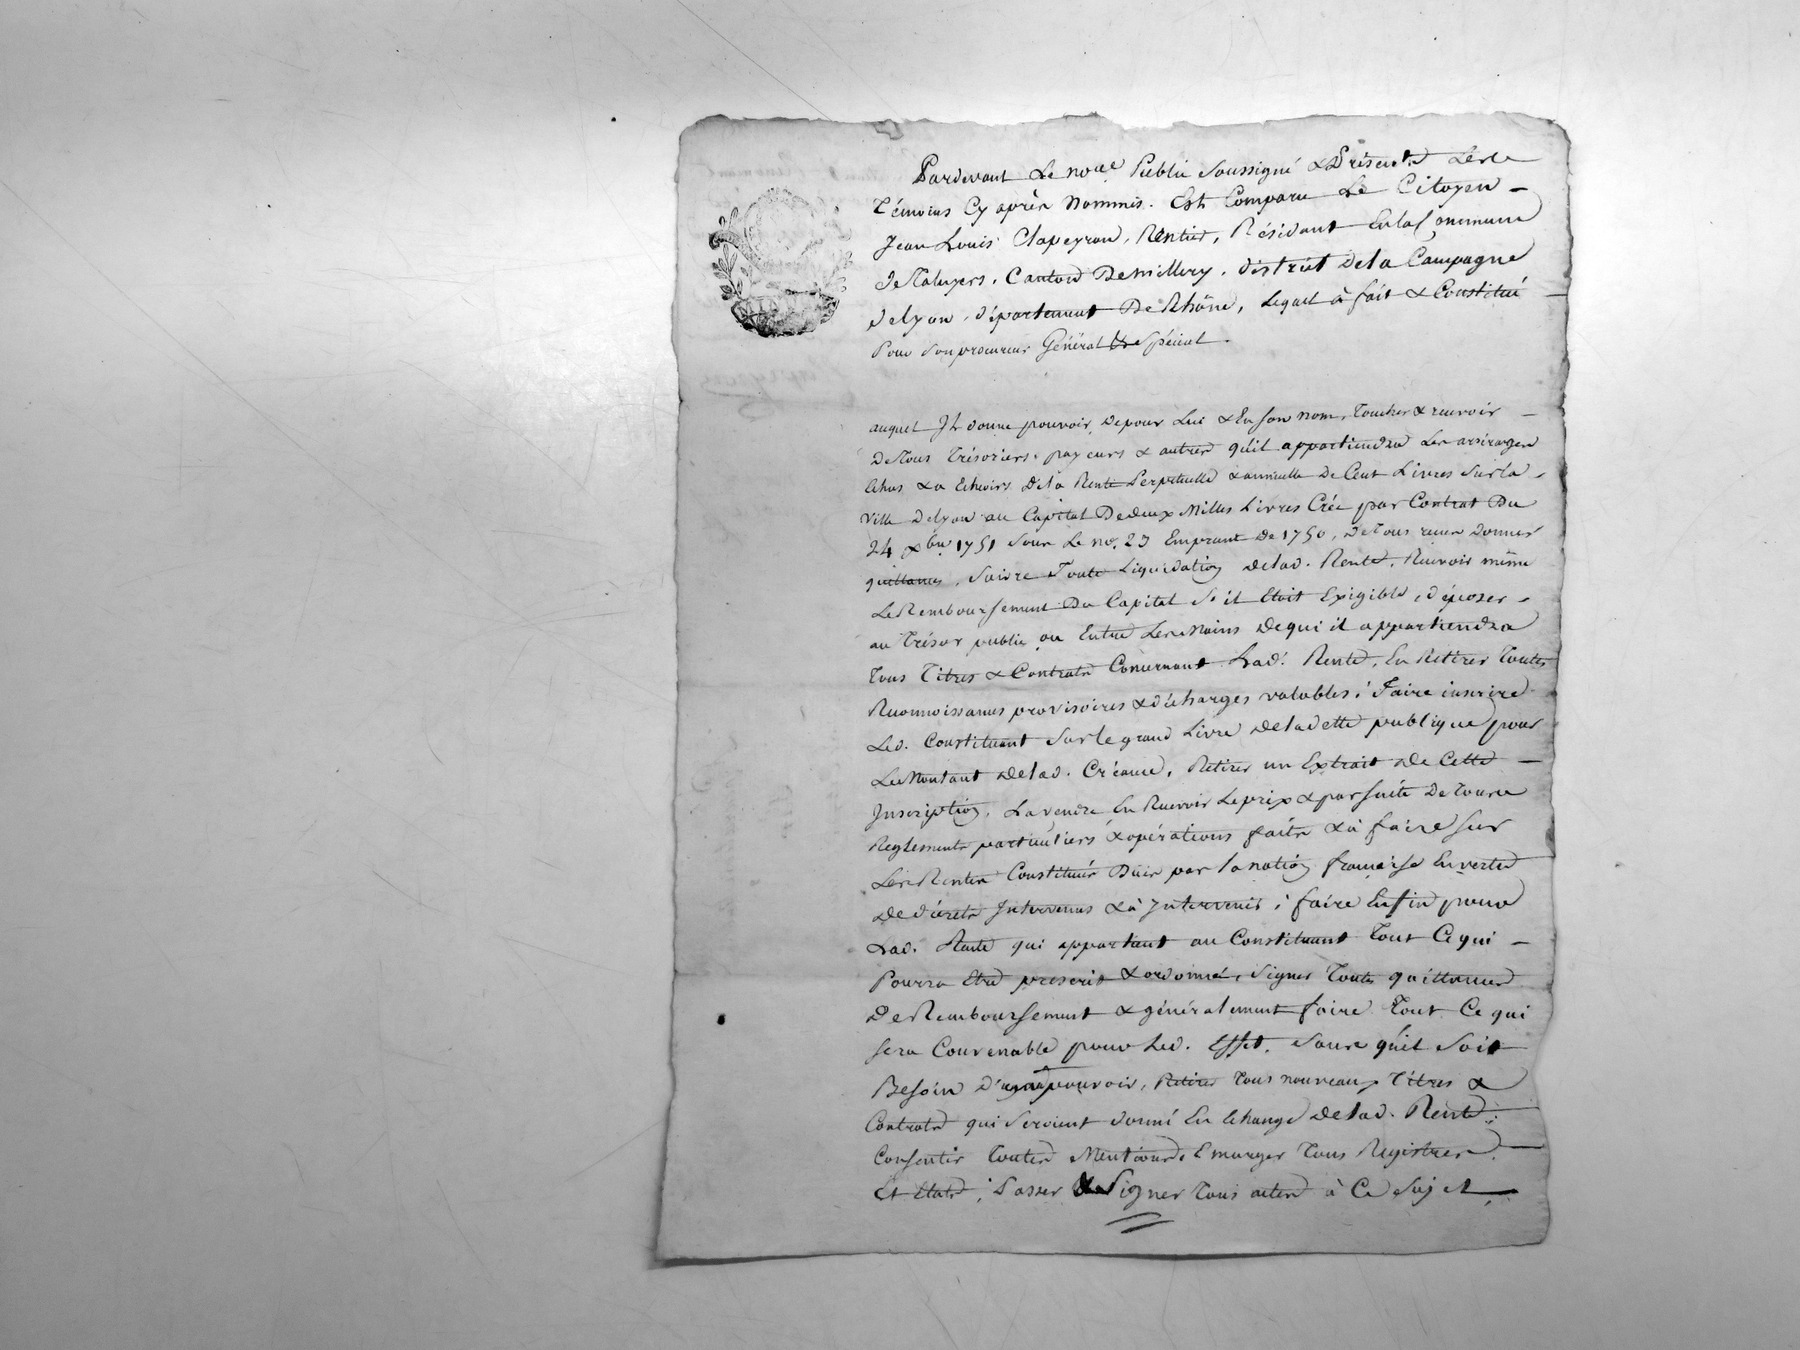 Pardevant Le no.re Public Soussigné & Présents Les
Témoins Cy après Nommés. Est Comparu Le Citoyen
Jean Louis Clapeyron, Rentier, Résidant En la Commune
De Taluyers, Canton De Millery, district De la Campagne
de Lyon, département De Rhône, Lequel à fait & Constitué
Pour Son procureur Général & Spécial.
auquel Il donne pouvoir, De pour Lui & En Son nom, Toucher & recevoir
De Tous Trésoriers, payeurs & autres qu'il appartiendra Les arrérages
Echus & a Echeoirs De la Rente Perpetuelle & annuelle De Cent Livres Sur la
Ville De Lyon au Capital De deux Milles Livres Créé par Contrat Du
24 xbre 1751 Sous Le no. 23 Emprunt De 1750, De Tous reçus Donner
quittances, Suivre Toute Liquidation De lad. Rente, Recevoir même
Le Remboursement Du Capital S'il Etoit Exigible, déposer
au Trésor public ou Entre Les Mains De qui il appartiendra
Tous Titres & Contrats Concernant Lad. Rente, En Retirer Toutes
Reconnoissances provisoires & décharges valables; Faire inscrire
Led. Constituant Sur le grand Livre De la dette publique pour
Le Montant De lad. Créance, Retirer un Extrait De Cette
Inscription, La vendre En Recevoir Le prix & par Suite De Tous
Reglements particuliers & opérations faits & à faire Sur
Les Rentes Constitués Dües par la nation française En vertu
De décrets Intervenus & à Intervenir; faire Enfin pour
Lad. Rente qui appartient au Constituant Tout Ce qui
Pourra Etre prescrit & ordonné, Signer Toute quittances
De Remboursement & généralement faire Tout Ce qui
Sera Convenable pour Led. Effet, Sans qu'il Soit
Besoin D'autre pouvoir, Retirer Tous nouveaux Titres &
Contrats qui Seroient donné En Echange De lad. Rente;
Consentir Toutes Mentions, Emarger Tous Registres
Et Etats; Passer & Signer Tous actes à Ce Sujet